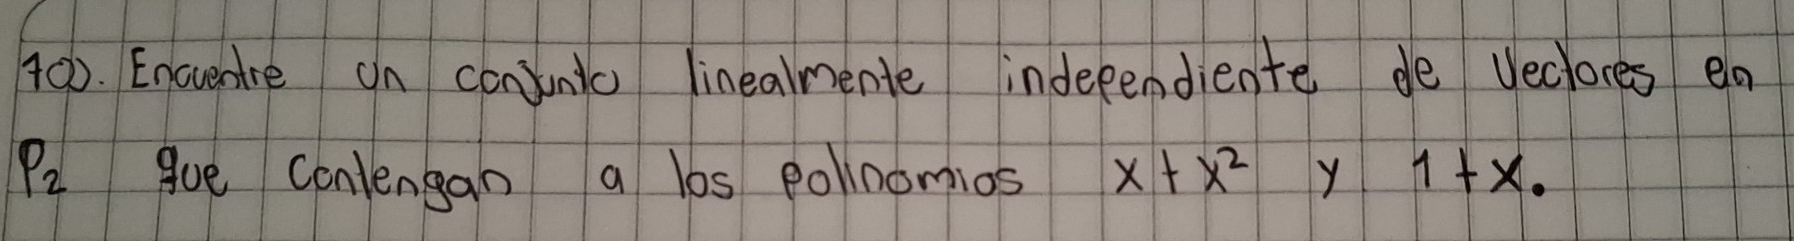 100. Encuentre un conjunto linealmente independiente de vectores en
P₂ que contengan a los polinomios x + x² y 1 + x.